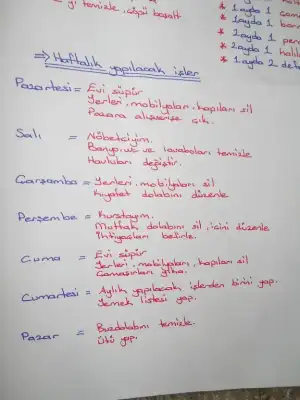 temizle, çöpü boşalt
* 1 ayda 1
* 1 ayda 1
* 2 ayda 1
* 1 ayda 2
⇒ Haftalık yapılacak işler
Pazartesi = Evi süpür
Yerleri, mobilyaları, kapıları sil
Pazara alışverişe çık.
Salı = Nöbetçiyim.
Banyo, wc ve lavaboları temizle
Havluları değiştir.
Çarşamba = Yerleri, mobilyaları sil
Kıyafet dolabını düzenle
Perşembe = Kurstayım.
Mutfak dolabını sil, içini düzenle
İhtiyaçları belirle.
Cuma = Evi süpür
Yerleri, mobilyaları, kapıları sil
Çamaşırları yıka.
Cumartesi = Aylık yapılacak işlerden birini yap.
Yemek listesi yap.
Pazar = Buzdolabını temizle.
Ütü yap.